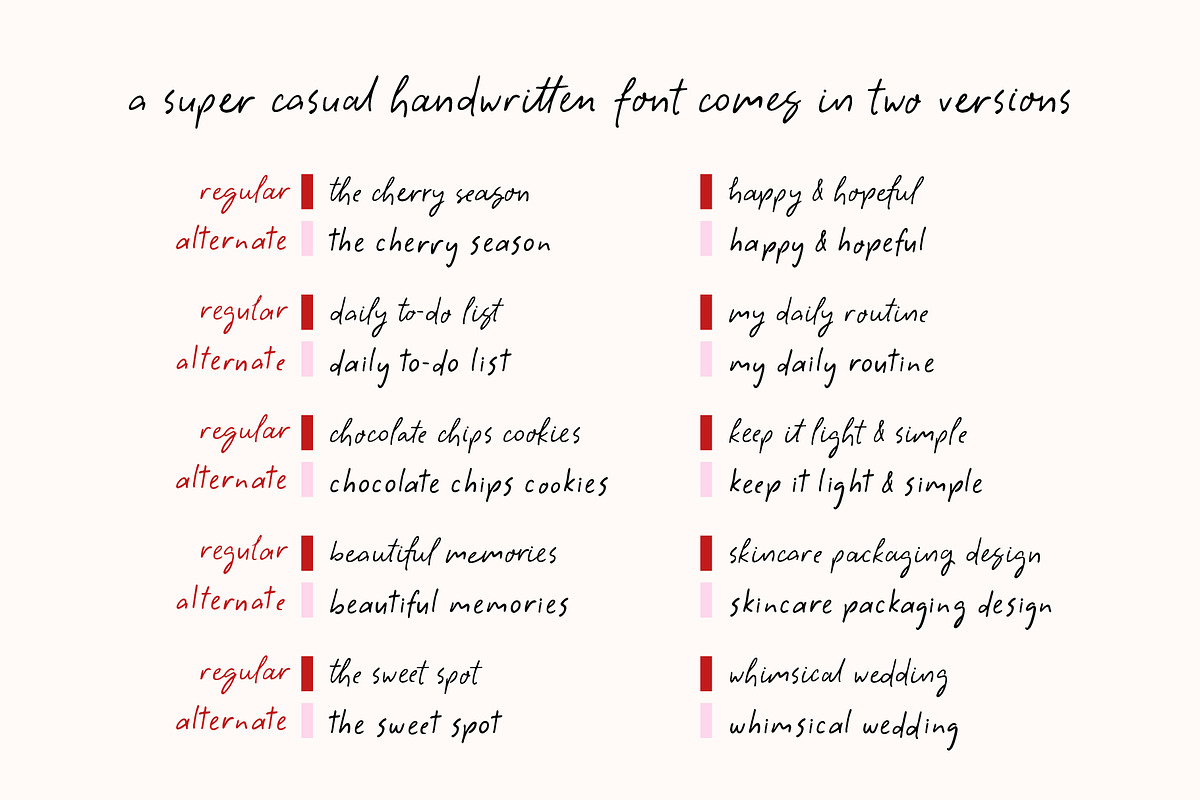 a super casual handwritten font comes in two versions
regular the cherry season happy & hopeful
alternate the cherry season happy & hopeful
regular daily to-do list my daily routine
alternate daily to-do list my daily routine
regular chocolate chips cookies keep it light & simple
alternate chocolate chips cookies keep it light & simple
regular beautiful memories skincare packaging design
alternate beautiful memories skincare packaging design
regular the sweet spot whimsical wedding
alternate the sweet spot whimsical wedding